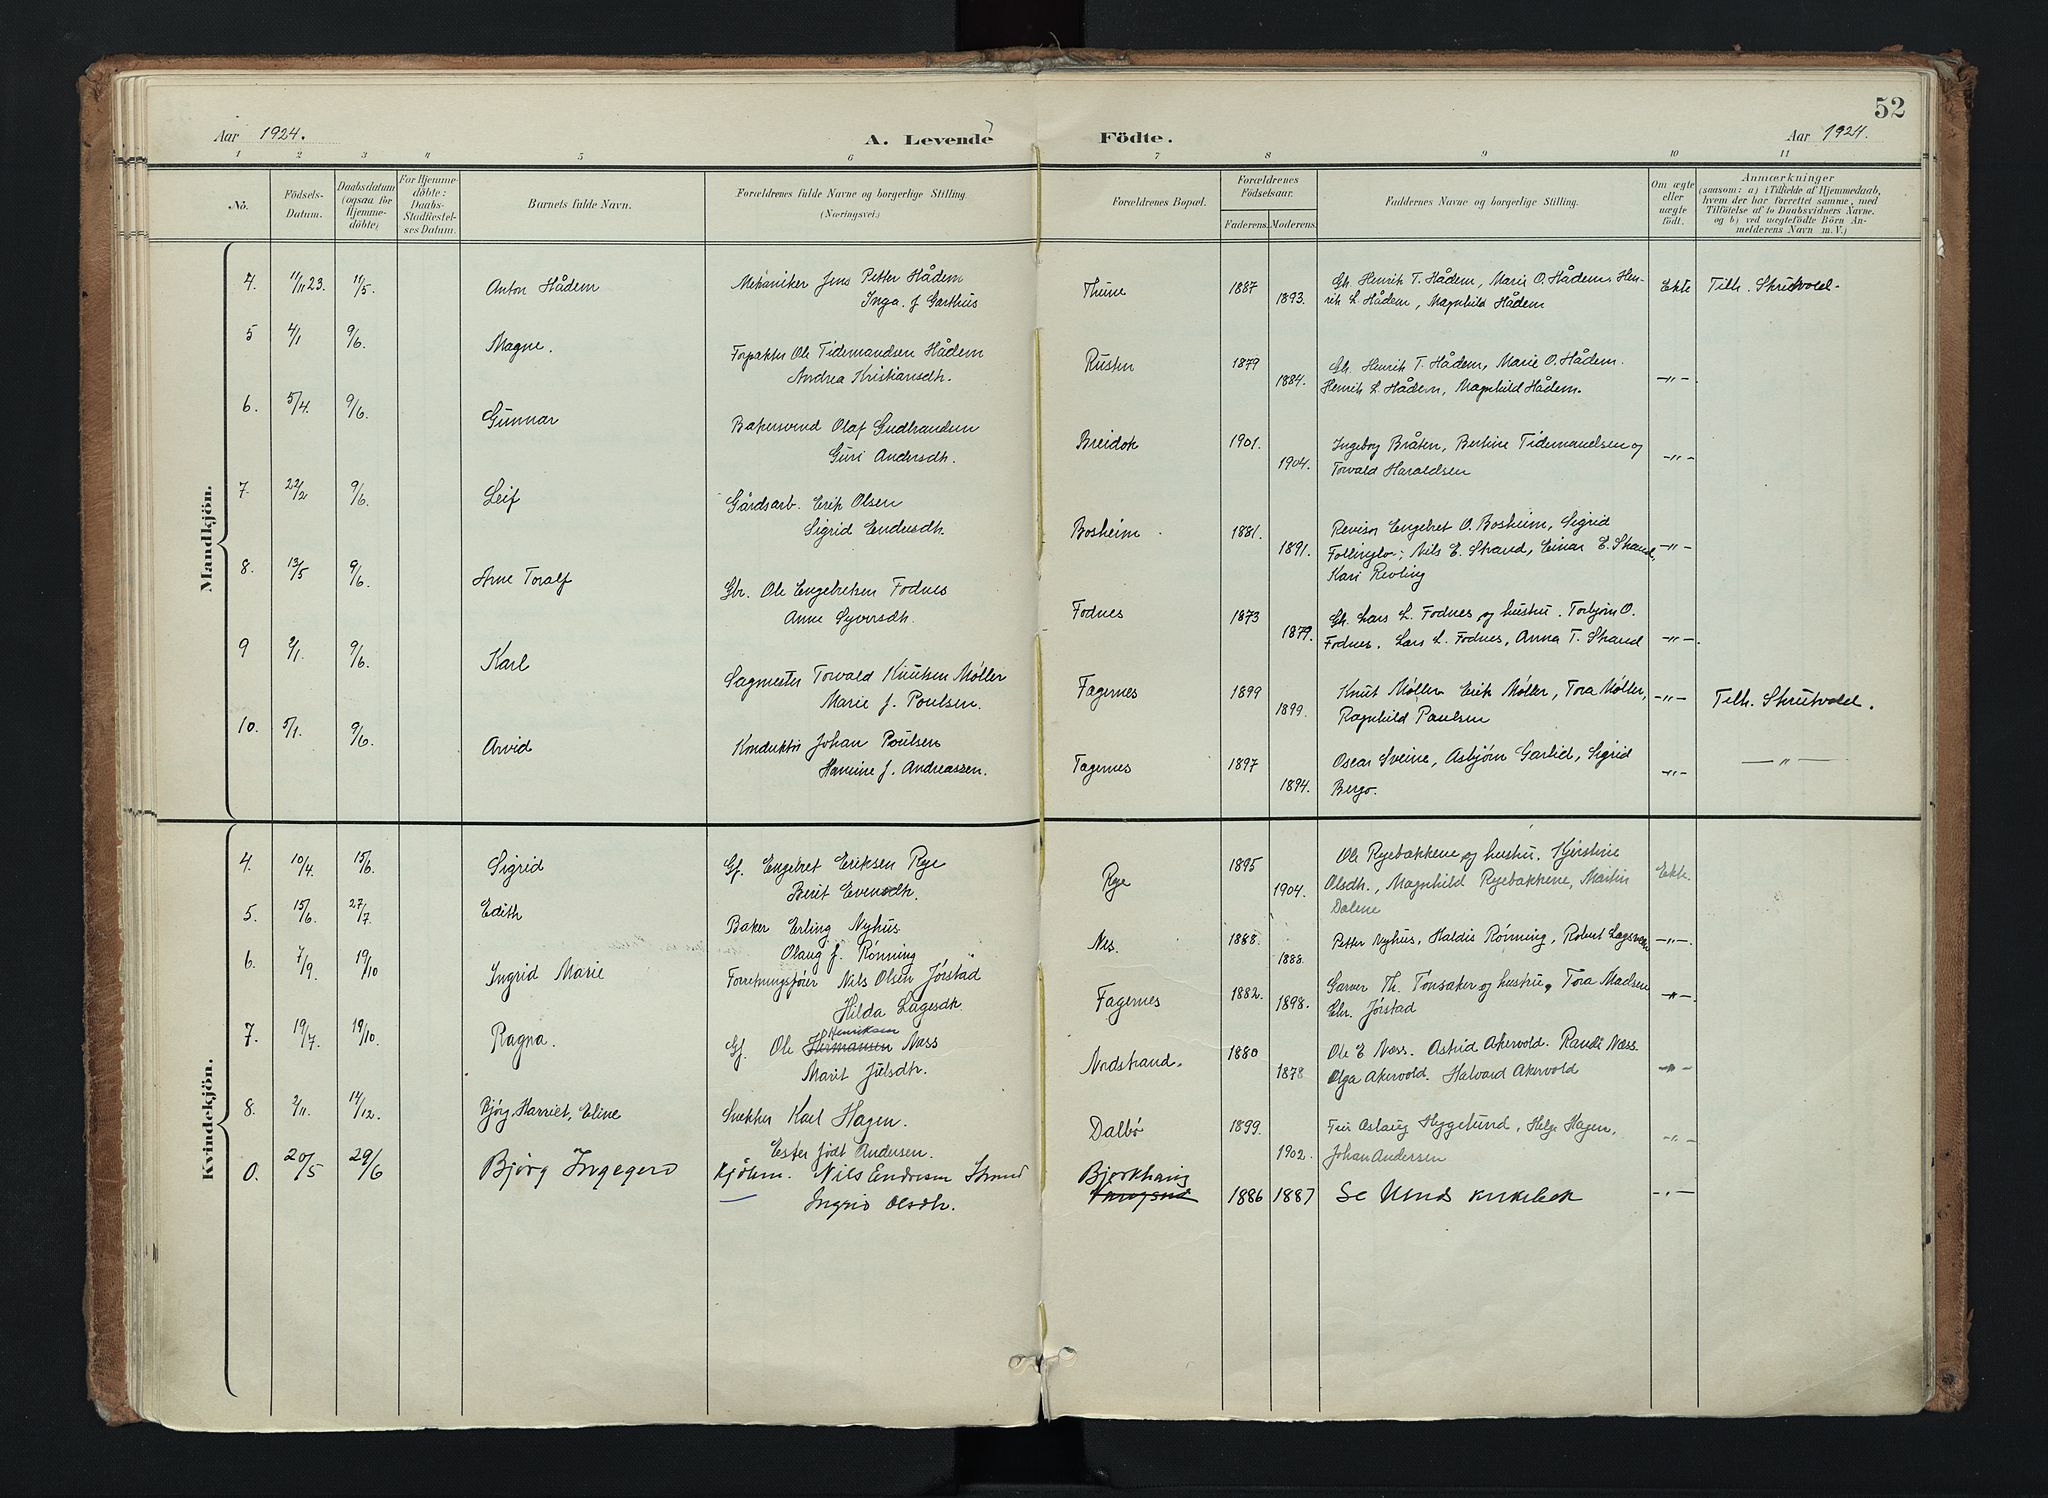 52
Aar 1924.
A. Levende
Födte.
Aar 1924.
1 2 3 4 5 6 7 8 9 10 11
No.
Födsels-
Datum.
Daabsdatum
(ogsaa for
Hjemme-
döbte)
For Hjemme-
döbte:
Daabs-
Stadfæstel-
ses Datum.
Barnets fulde Navn.
Forældrenes fulde Navne og borgerlige Stilling.
(Næringsvei.)
Forældrenes Bopæl.
Forældrenes
Födselsaar.
Faderens. Moderens.
Faddernes Navne og borgerlige Stilling.
Om ægte
eller
uægte
födt.
Anmærkninger
(saasom: a) i Tilfælde af Hjemmedaab,
hvem der har forrettet samme, med
Tilföielse af to Daabsvidners Navne,
og b) ved uægtefödte Börn An-
melderens Navn m. V.)
Mandkjön.
4. 11/11 23. 11/5. Anton Hådem Mekaniker Jens Petter Hådem Thune 1887 Gb. Henrik T. Hådem, Marie O. Hådem, Hen- Ekte Tilh. Skrutvold.
Inga J. Garthus 1893. rik L Hådem, Magnhild Hådem
5 4/1 9/6. Magne. Forpakter Ole Tidemandsen Hådem Rusten 1879 Gb. Henrik T. Hådem, Marie O. Hådem.
Andrea Kristiansdh. 1884. Henrik L Hådem, Magnhild Hådem. -"-
6. 5/4. 9/6. Gunnar Bakersvend Olaf Gudbrandsen Breidok 1901. Ingebog Bråten, Bertine Tidemandsen og
Guri Andersdh. 1904. Torvald Haraldsen -"-
7. 22/2 9/6. Leif Gårdsarb. Erik Olsen Bosheim 1881. Revisor Engebret O. Bosheim, Sigrid
Sigrid Endersdh. 1891. Follinglo; Nils E. Strand, Einar E. Strand, -"-
Kari Revling
8. 13/5 9/6. Arne Toralf Gbr. Ole Engebretsen Fodnes Fodnes 1873 Gb. Lars L. Fodnes og hustru. Torbjørn O.
Anne Syversdh. 1879. Fodnes. Lars L. Fodnes, Anna T. Strand -"-
9 2/1. 9/6. Karl Sagmester Torvald Knutsen Møller Fagernes 1899 Knut Møller Erik Møller, Tora Møller, -"- Tilh. Skrutvold.
Marie f. Poulsen. 1899. Ragnhild Paulsen
10. 5/1. 9/6. Arvid Konduktør Johan Poulsen Fagernes 1897 Oscar Sveine, Asbjørn Garlid, Sigrid
Hanine f. Andreassen. 1894. Bergo. -"- -"-
Kvindekjön.
4. 10/4. 15/6. Sigrid Gf. Engebret Eriksen Rye Rye 1895 Ole Ryebakkene og hustru. Kjerstine
Berit Evensdh. 1904. Olsdh., Magnhild Ryebakkene, Martin Ekte.
Dalene
5. 15/6. 27/7. Edith Baker Erling Nyhus Nes. 1888. Petter Nyhus, Haldis Rønning, Robert -"-.
Olaug f. Rønning 1888.
6. 7/9. 19/10 Ingrid Marie Forretningsfører Nils Olsen Jørstad Fagernes 1882. Garver Th. Tonsaker og hustru, Tora Madsen -"-.
Hilda Lagesdh. 1898. Chr. Jørstad
7. 19/7. 19/10. Ragna. Gf. Ole Hermansen Henriksen Næss Nordstrand. 1880 Ole E Næss. Astrid Akervold. Randi Næss.
Marit Julsdh. 1878 Olga Akervold. Halvard Akervold -"-
8. 2/11. 14/12. Bjørg, Harriet, Eline Snekker Karl Hagen. Dalbø 1899. Fru Aslaug Hyggelund, Helge Hagen,
Ester født Andersen. 1902. Johan Andersen -"-
0. 20/5 29/6 Bjørg Ingegerd Kjøbm. Nils Endresen Strand Bjørkhaug
Ingrid Olsdh. 1886 1887 Se Ulnes kirkebok -"-